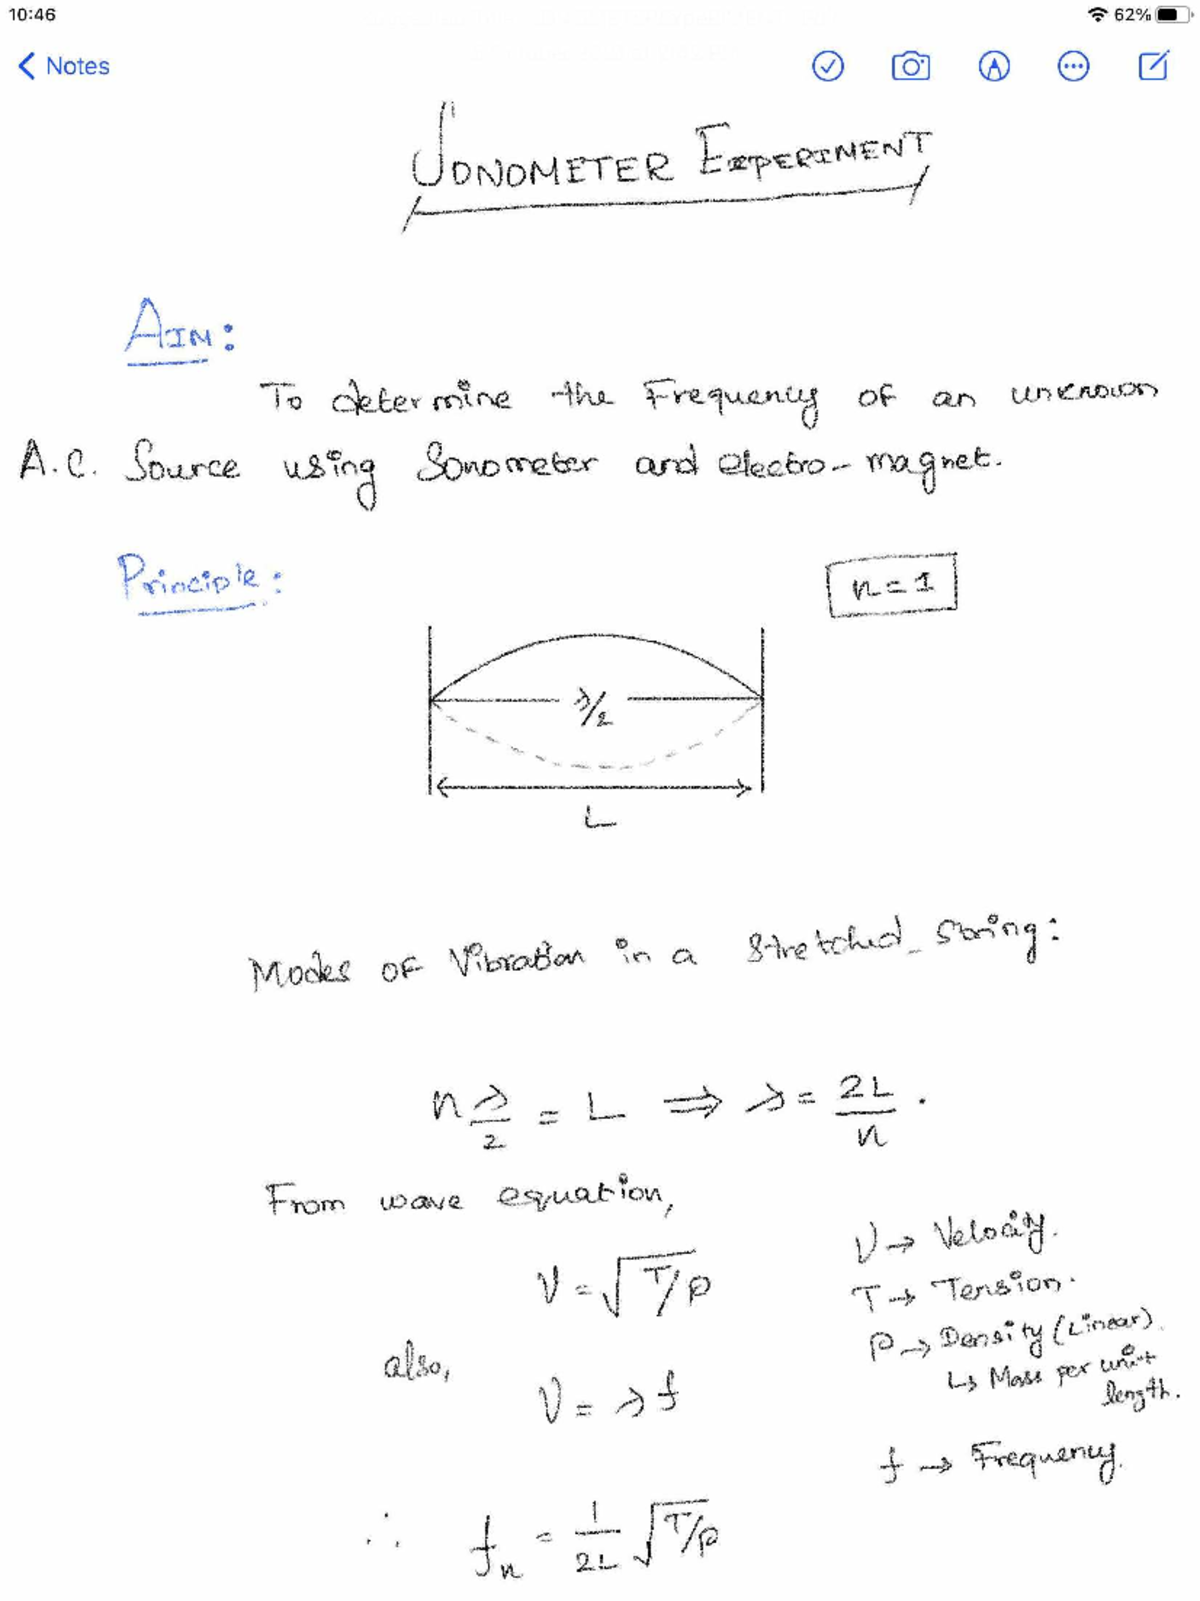 10:46
62%
Notes
SONOMETER EXPERIMENT
AIM:
To determine the Frequency of an unknown
A.C. Source using Sonometer and electro-magnet.
Principle:
n = 1
λ/2
L
Modes of Vibration in a Stretched String:
n λ/2 = L ⇒ λ = 2L/n.
From wave equation,
V → Velocity.
V = √T/ρ
T → Tension.
ρ → Density (Linear).
↳ Mass per unit
length.
also,
V = λ f
f → Frequency.
∴ fn = 1/2L √T/ρ